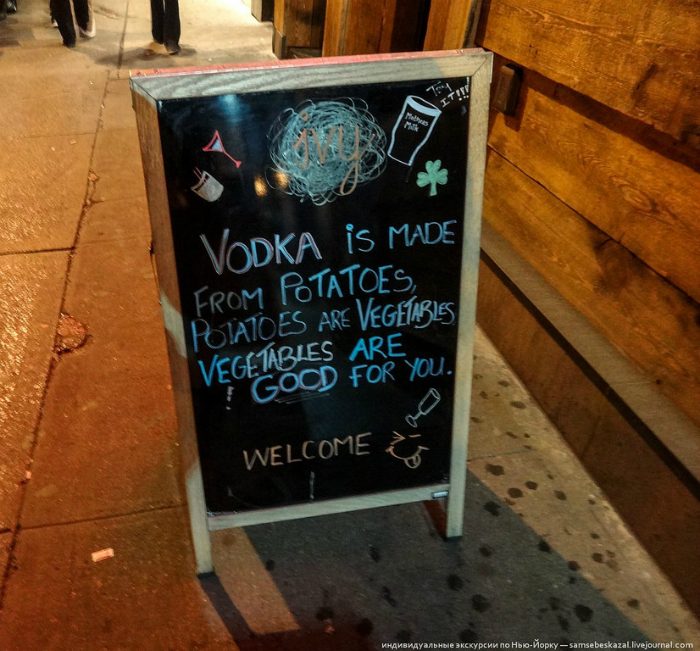 Try
IT!!!
ivy
Mothers
Milk
VODKA is MADE
FROM POTATOES,
POTATOES ARE VEGETABLES
VEGETABLES ARE
GOOD FOR YOU.
WELCOME
индивидуальные экскурсии по Нью-Йорку — samsebeskazal.livejournal.com